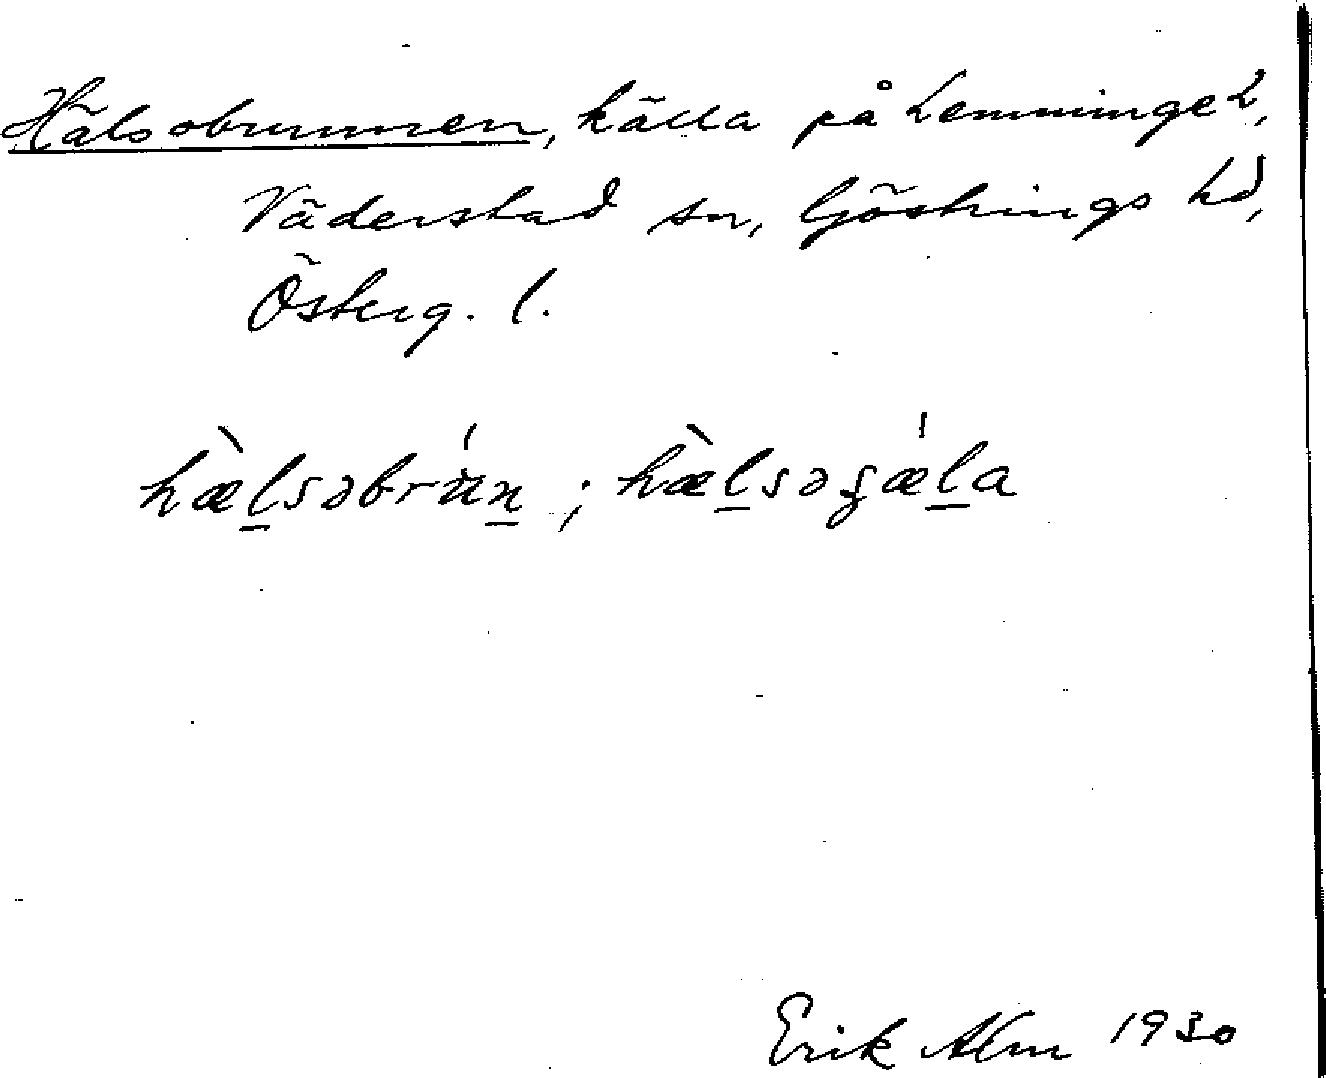 Hälsobrunnen, källa på Lemminge L,
Väderstad sn, Göstrings hd,
Österg. l.
hæ̀l̲səbrún̲ ; hæ̀l̲səʂǽl̲a
Erik Alm 1930